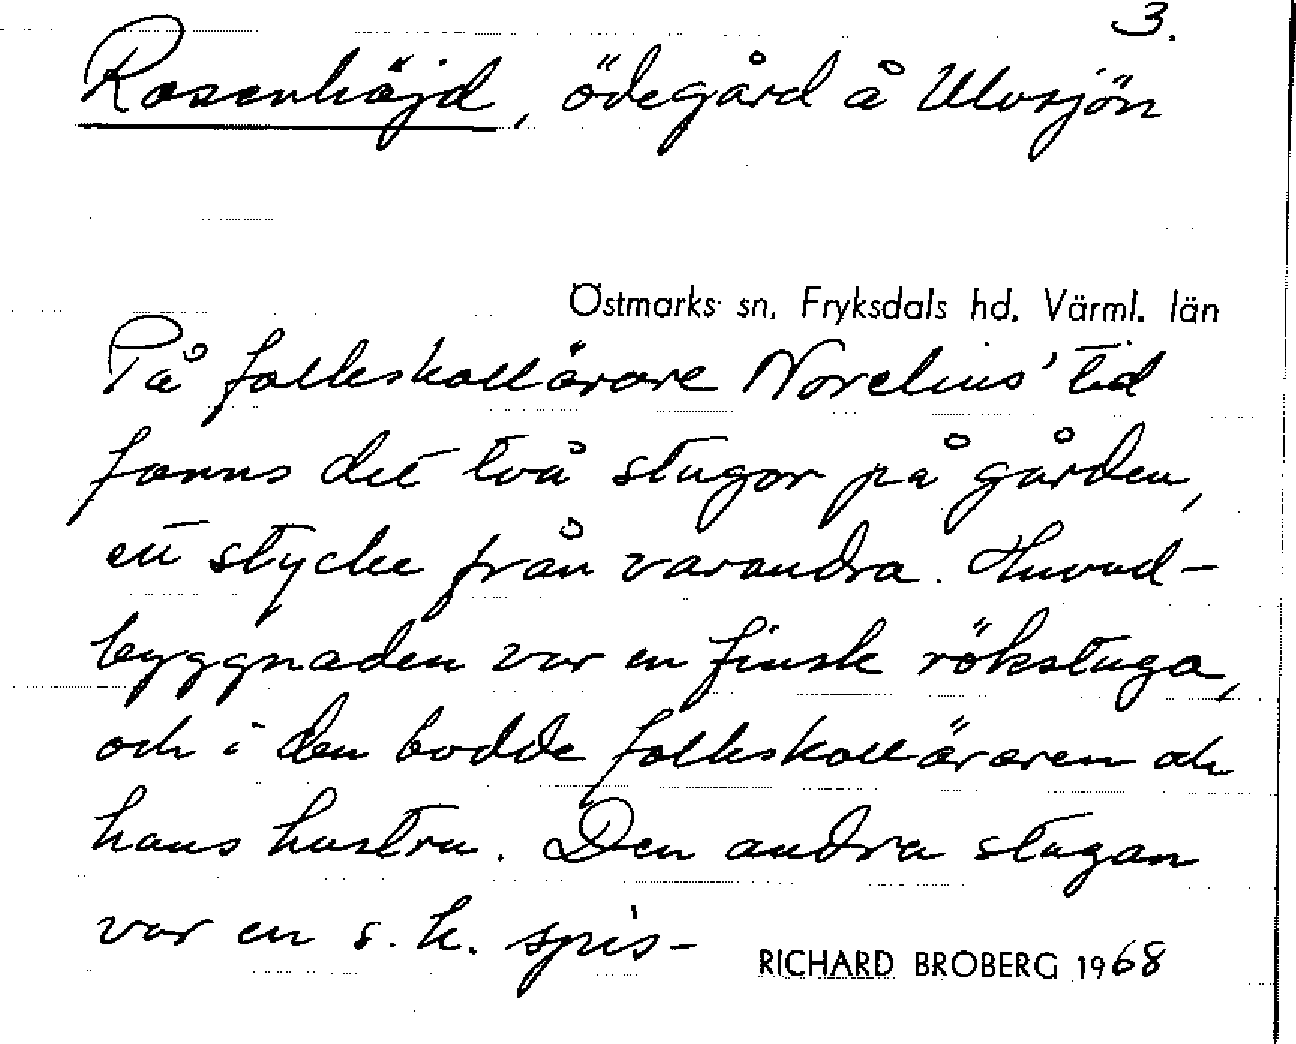 3.
Rosenhöjd, ödegård å Ulvsjön
Östmarks sn, Fryksdals hd. Värml. län
På folkskollärare Norelius' tid
fanns det två stugor på gården,
ett stycke från varandra. Huvud-
byggnaden var en finsk rökstuga,
och i den bodde folkskolläraren och
hans hustru. Den andra stugan
var en s.k. spis-
RICHARD BROBERG 1968